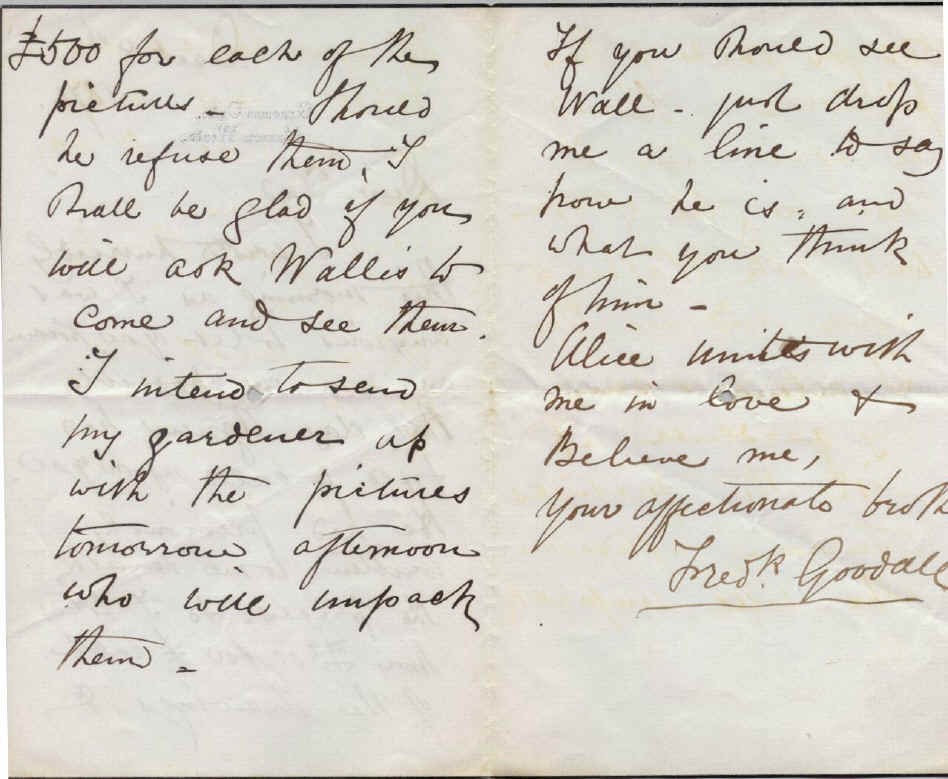 £500 for each of the
pictures. Should
he refuse them, I
shall be glad if you
will ask Wallis to
come and see them.
I intend to send
my gardener up
with the pictures
tomorrow afternoon
who will unpack
them -
If you should see
Wall - just drop
me a line to say
how he is, and
what you think
of him -
Alice unites with
me in love &
Believe me,
your affectionate broth
Fredk. Goodall